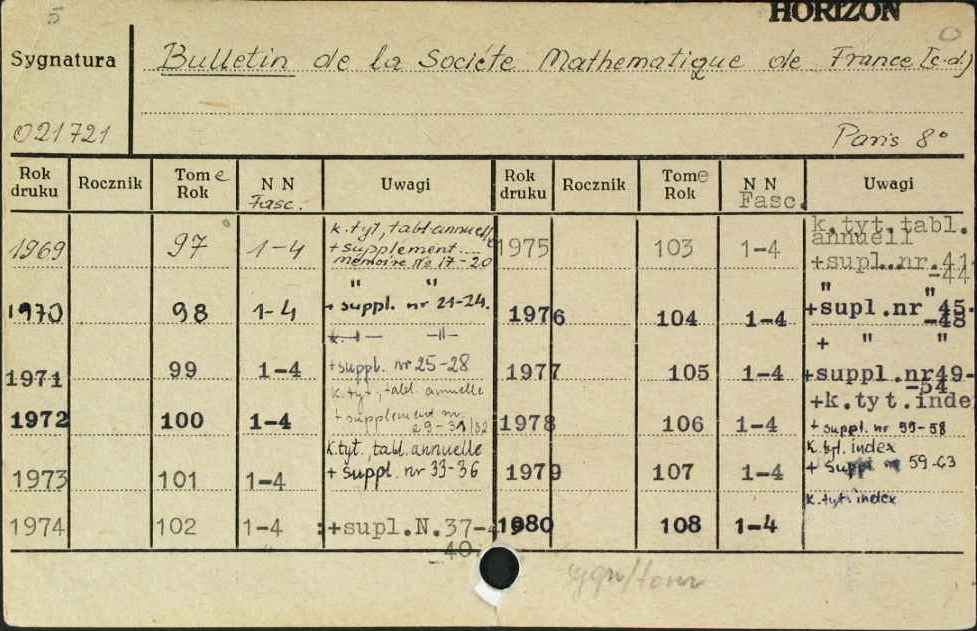 5
HORIZON
0
Sygnatura
Bulletin de la Société Mathematique de France [c.d.)
021721
Paris 8°
Rok druku Rocznik Tome Rok NN Fasc. Uwagi Rok druku Rocznik Tome Rok NN Fasc. Uwagi
1969 97 1-4 k. tyt, tabl. annuell
+ supplement
mémoire No 17-20
1975 103 1-4 k.tyt.tabl.
annuell
+supl.nr.41-
-44
1970 98 1-4 " "
+ suppl. nr 21-24.
1976 104 1-4 " "
+supl.nr 45-
-48
1971 99 1-4 k. -||- -||-
+ suppl. nr 25-28
1977 105 1-4 + " "
+suppl.nr49-
-54
1972 100 1-4 k. tyt, tabl. annuelle
+ supplement nr
29-31/32
1978 106 1-4 +k.tyt.inde
+ suppl. nr 55-58
1973 101 1-4 k.tyt., tabl. annuelle
+ suppl. nr 33-36
1979 107 1-4 k. tyt. index
+ suppl nr 59-63
1974 102 1-4 +supl.N.37-
40
1980 108 1-4 k. tyt. index